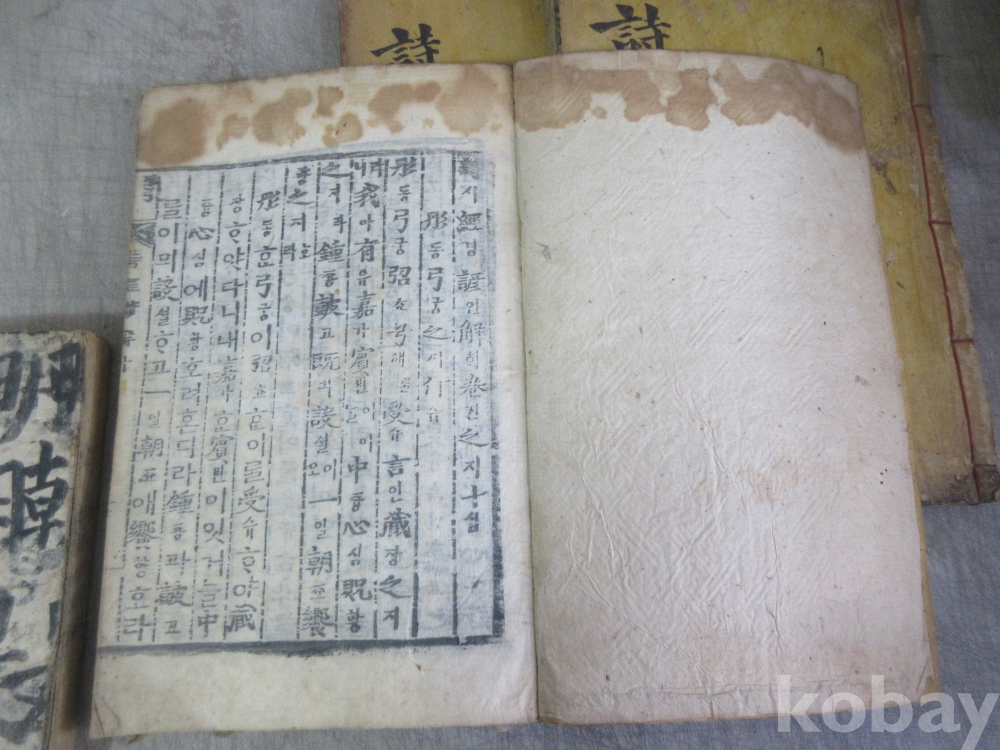 詩시經경諺언解ᄒᆡ卷권之지十십
彤동弓궁之지什십
彤동弓궁弨쵸兮혜를受슈言언藏장之지
라我아有유嘉가賓빈이어ᄂᆞᆯ中듕心심貺황
之지라鐘죵鼓고既긔設셜이오一일朝죠饗
향之지호라
彤동ᄒᆞᆫ弓궁이弨쵸ᄒᆞᆫ이ᄅᆞᆯ受슈ᄒᆞ야藏
장ᄒᆞ얏다니내嘉가ᄒᆞᆫ賓빈이잇거늘中
듕心심에貺황호려ᄒᆞ디라鐘죵과鼓고
를이믜設셜ᄒᆞ고一일朝죠애饗향호라
詩
詩
kobay